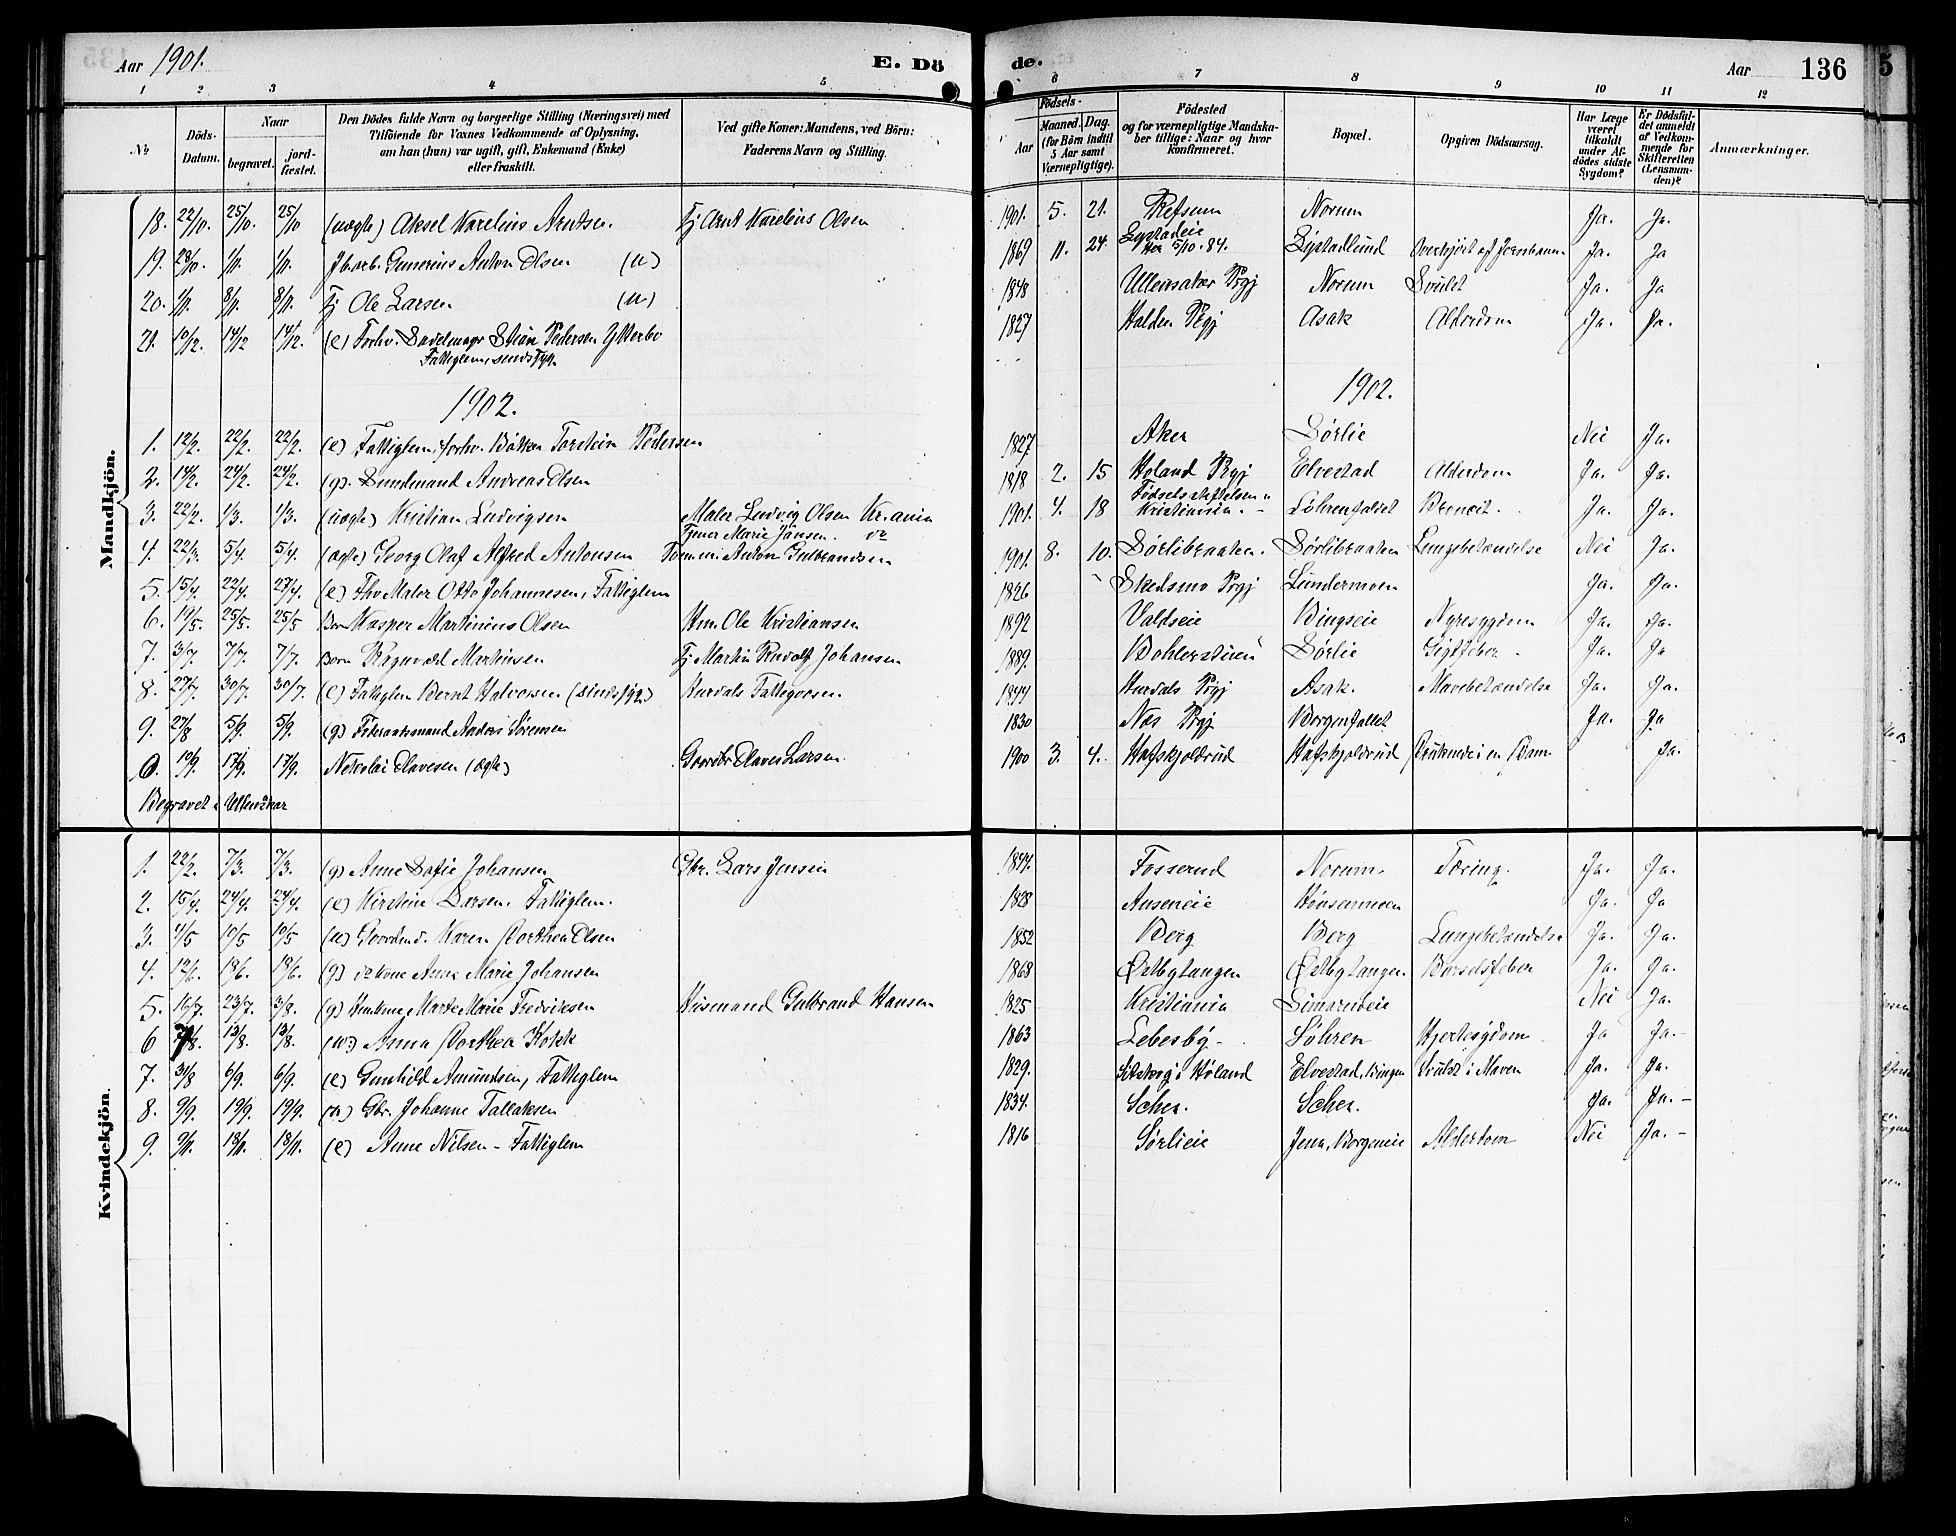 Aar 1901. E. Dö de. Aar 136
1 2 3 4 5 6 7 8 9 10 11 12
No Döds-Datum. Naar begravet. jord-fæstet.
Den Dödes fulde Navn og borgerlige Stilling (Næringsvei) med
Tilföiende for Voxnes Vedkommende af Oplysning,
om han (hun) var ugift, gift, Enkemand (Enke)
eller fraskilt.
Ved gifte Koner: Mandens, ved Börn:
Faderens Navn og Stilling.
Födsels-
Aar Maaned. Dag.
(for Börn indtil
5 Aar samt
Værnepligtige).
Födested
og for værnepligtige Mandska-
ber tillige: Naar og hvor
konfirmeret.
Bopæl.
Opgiven Dödsaarsag.
Har Læge
været
tilkaldt
under Af-
dödes sidste
Sygdom?
Er Dödsfal-
det anmeldt
af Vedkom-
mende for
Skifteretten
(Lensman-
den)?
Anmærkninger.
Mandkjön.
18. 22/10. 25/10. 25/10 (uægte) Aksel Karelius Arntsen. Tj Arnt Karelius Olsen 1901. 5. 21. Refsum Norum Ja. Ja.
19. 28/10. 1/11. 1/11. Jb.arb. Gunerius Anton Olsen (u) 1869 11. 24 Lystadeie 5/10. 84. Lystadlund Overkjört af Jernbanen Ja. Ja
20. 1/11. 8/11. 8/11. Tj Ole Larsen (u) 1848 Ullensaker Prgj Norum Svulst Ja. Ja
21. 10/12. 14/12 14/12. (e) Forhv. Sadelmagr Stian Pedersen Ytterbo 1827 Halden Prgj Asak Alderdom Ja. Ja.
Fattiglem, sindssyg.
1902. 1902.
1. 12/2. 22/2. 22/2. (e) Fattiglem, forhv. Torstein Pedersen 1827 Aker Sörlie Nei Ja.
2. 14/2. 24/2. 24/2. (g). Sundmand Andreas Olsen 1818 2. 15 Höland Prgj Elvestad Alderdom Ja. Ja.
3. 22/2. 1/3. 1/3. (uægte) Kristian Ludvigsen Maler Ludvig Olsen Kr.ania 1901. 4. 18 Födselsstiftelsen i Kristiania. Löhrenfaldet Bronkit. Ja. Ja.
Tjener Marie Jansen. do
4. 22/3. 5/4. 5/4. (ægte) Georg Olaf Alfred Antonsen Tömmerm. Anton Gulbrandsen 1901 8. 10. Sörlibraaten. Sörlibraaten Lungebetændelse Nei Ja.
5. 15/4. 27/4. 27/4. (e) Fhv Maler Otto Johannesen, Fattiglem 1826 Skedsmo Prgj Lundermoen Ja. Ja.
6. 19/5. 25/5. 25/5 Barn Kasper Martinius Olsen Hm. Ole Kristiansen 1892 Valdseie Bingseie Nyresygdom Ja. Ja.
7. 3/7. 7/7. 7/7. Barn Ragnvald Martinsen Tj Martin Rudolf Johansen 1889. Bohlerstuen Sörlie Gigtfeber Ja. Ja
8. 27/7. 30/7. 30/7. (e) Fattiglem Bernt Halvorsen (sindssyg) Hurdals Fattigvæsen. 1844 Hurdals Prgj Asak. Mavebetændelse Ja. Ja.
9. 27/8 5/9. 5/9. (g) Föderaadsmand Anders Sörensen 1830 Næs Prgj Borgenfallet Ja. Ja
19/9. 17/9. 17/9. Nekolai Olavesen (ægte) Gaardbr Olaves Larsen 1900 3. 4. Hafskjoldrud Hafskjoldrud Druknede i en Dam Ja.
Begravet i Ullensaker
Kvindekjön.
1. 22/2. 7/3. 7/3. (g) Anne Sofie Johansen Gbr. Lars Jensen 1847. Fosserud Norum. Tæring. Ja. Ja.
2. 15/4. 24/4. 24/4. (e) Kirstine Larsen. Fattiglem. 1828 Auseneie Hönsenmoen Ja. Ja
3. 4/5 10/5 10/5 (u) Gaardmd. Karen Dorthea Olsen 1852 Berg Berg Lungebetændelse Ja. Ja.
4. 12/6. 18/6. 18/6. (g) do kone Anne Marie Johansen 1868 Østbytangen Østbytangen. Barselsfeber Ja. Ja.
5. 16/7. 23/7. 3/8. (g) Hmkone Marte Marie Fredriksen Husmand Gulbrand Hansen 1825 Kristiania Simarudeie Nei Ja.
6 7/8. 13/8. 13/8. Anna Dorthea Holck 1863 Lebesby. Löhren Hjertesygdom Ja Ja.
7. 31/8 6/9. 6/9. (e) Gunhild Amundsen, Fattiglem 1829. Sitskog i Höland Elvestad, Bingen Svulst i Maven Ja. Ja.
8. 9/9. 19/9. 19/9. Gbr. Johanne Tallaksen 1834. Scher. Scher. Ja. Ja.
9. 9/11. 18/11. 18/11. (e) Anne Nilsen - Fattiglem 1816 Sörlieie Jena, Borgeneie Alderdom Nei Ja.